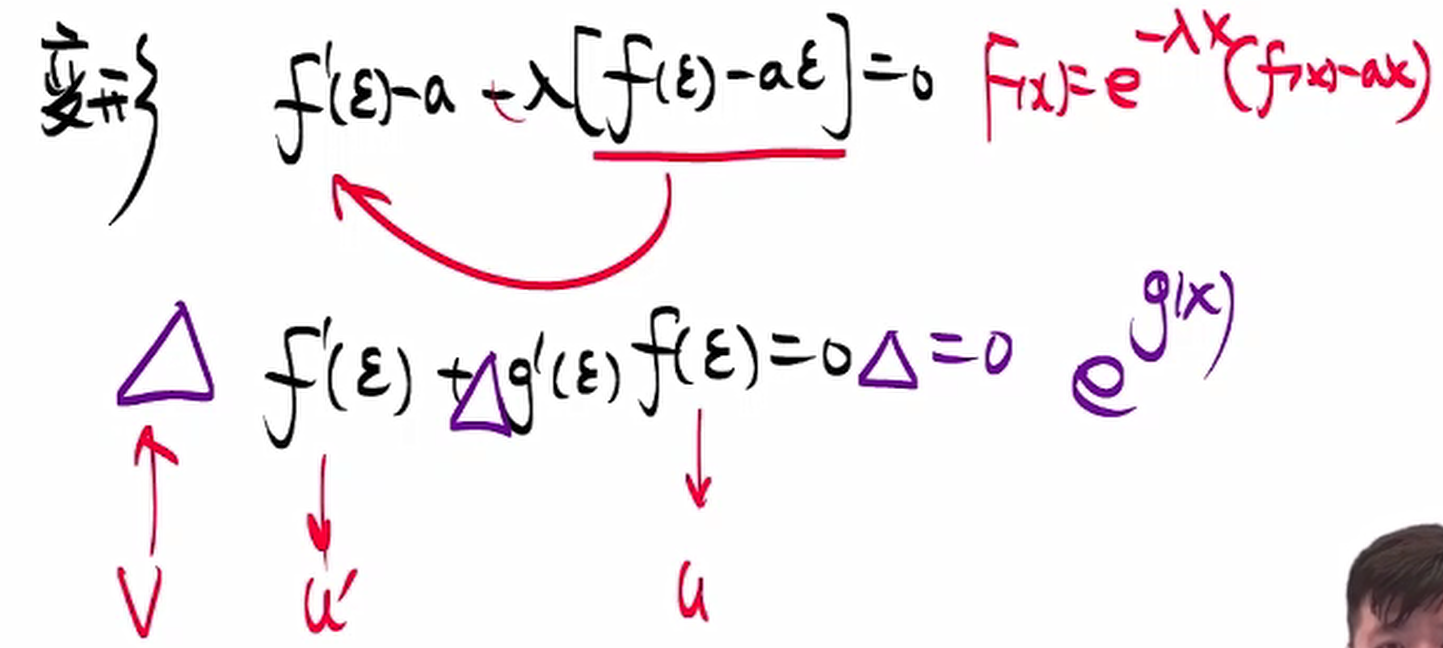 变形} f'(ξ)-a -λ[f(ξ)-aξ]=0 F(x)=e^{-λx}(f(x)-ax)
△ f'(ξ) +△g'(ξ) f(ξ)=0△=0 e^{g(x)}
V u' u